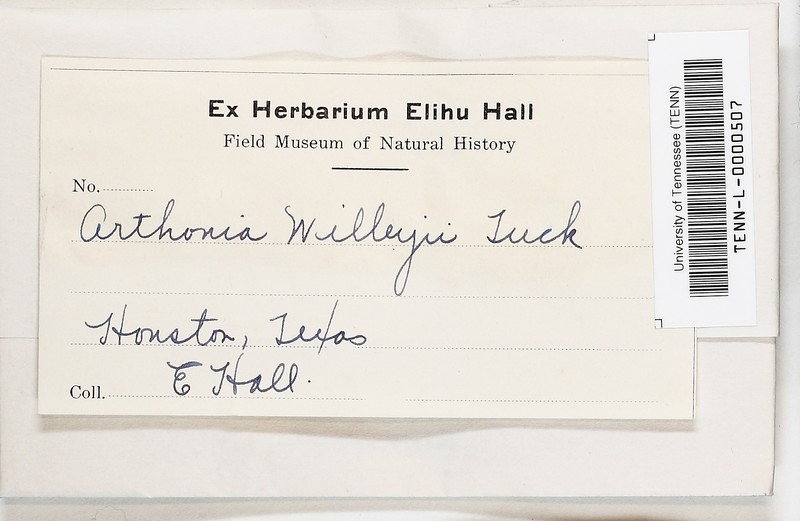 Ex Herbarium Elihu Hall
Field Museum of Natural History
No.
Arthonia Willeyii Tuck
Houston, Texas
Coll. E Hall.
University of Tennessee (TENN)
TENN-L-0000507